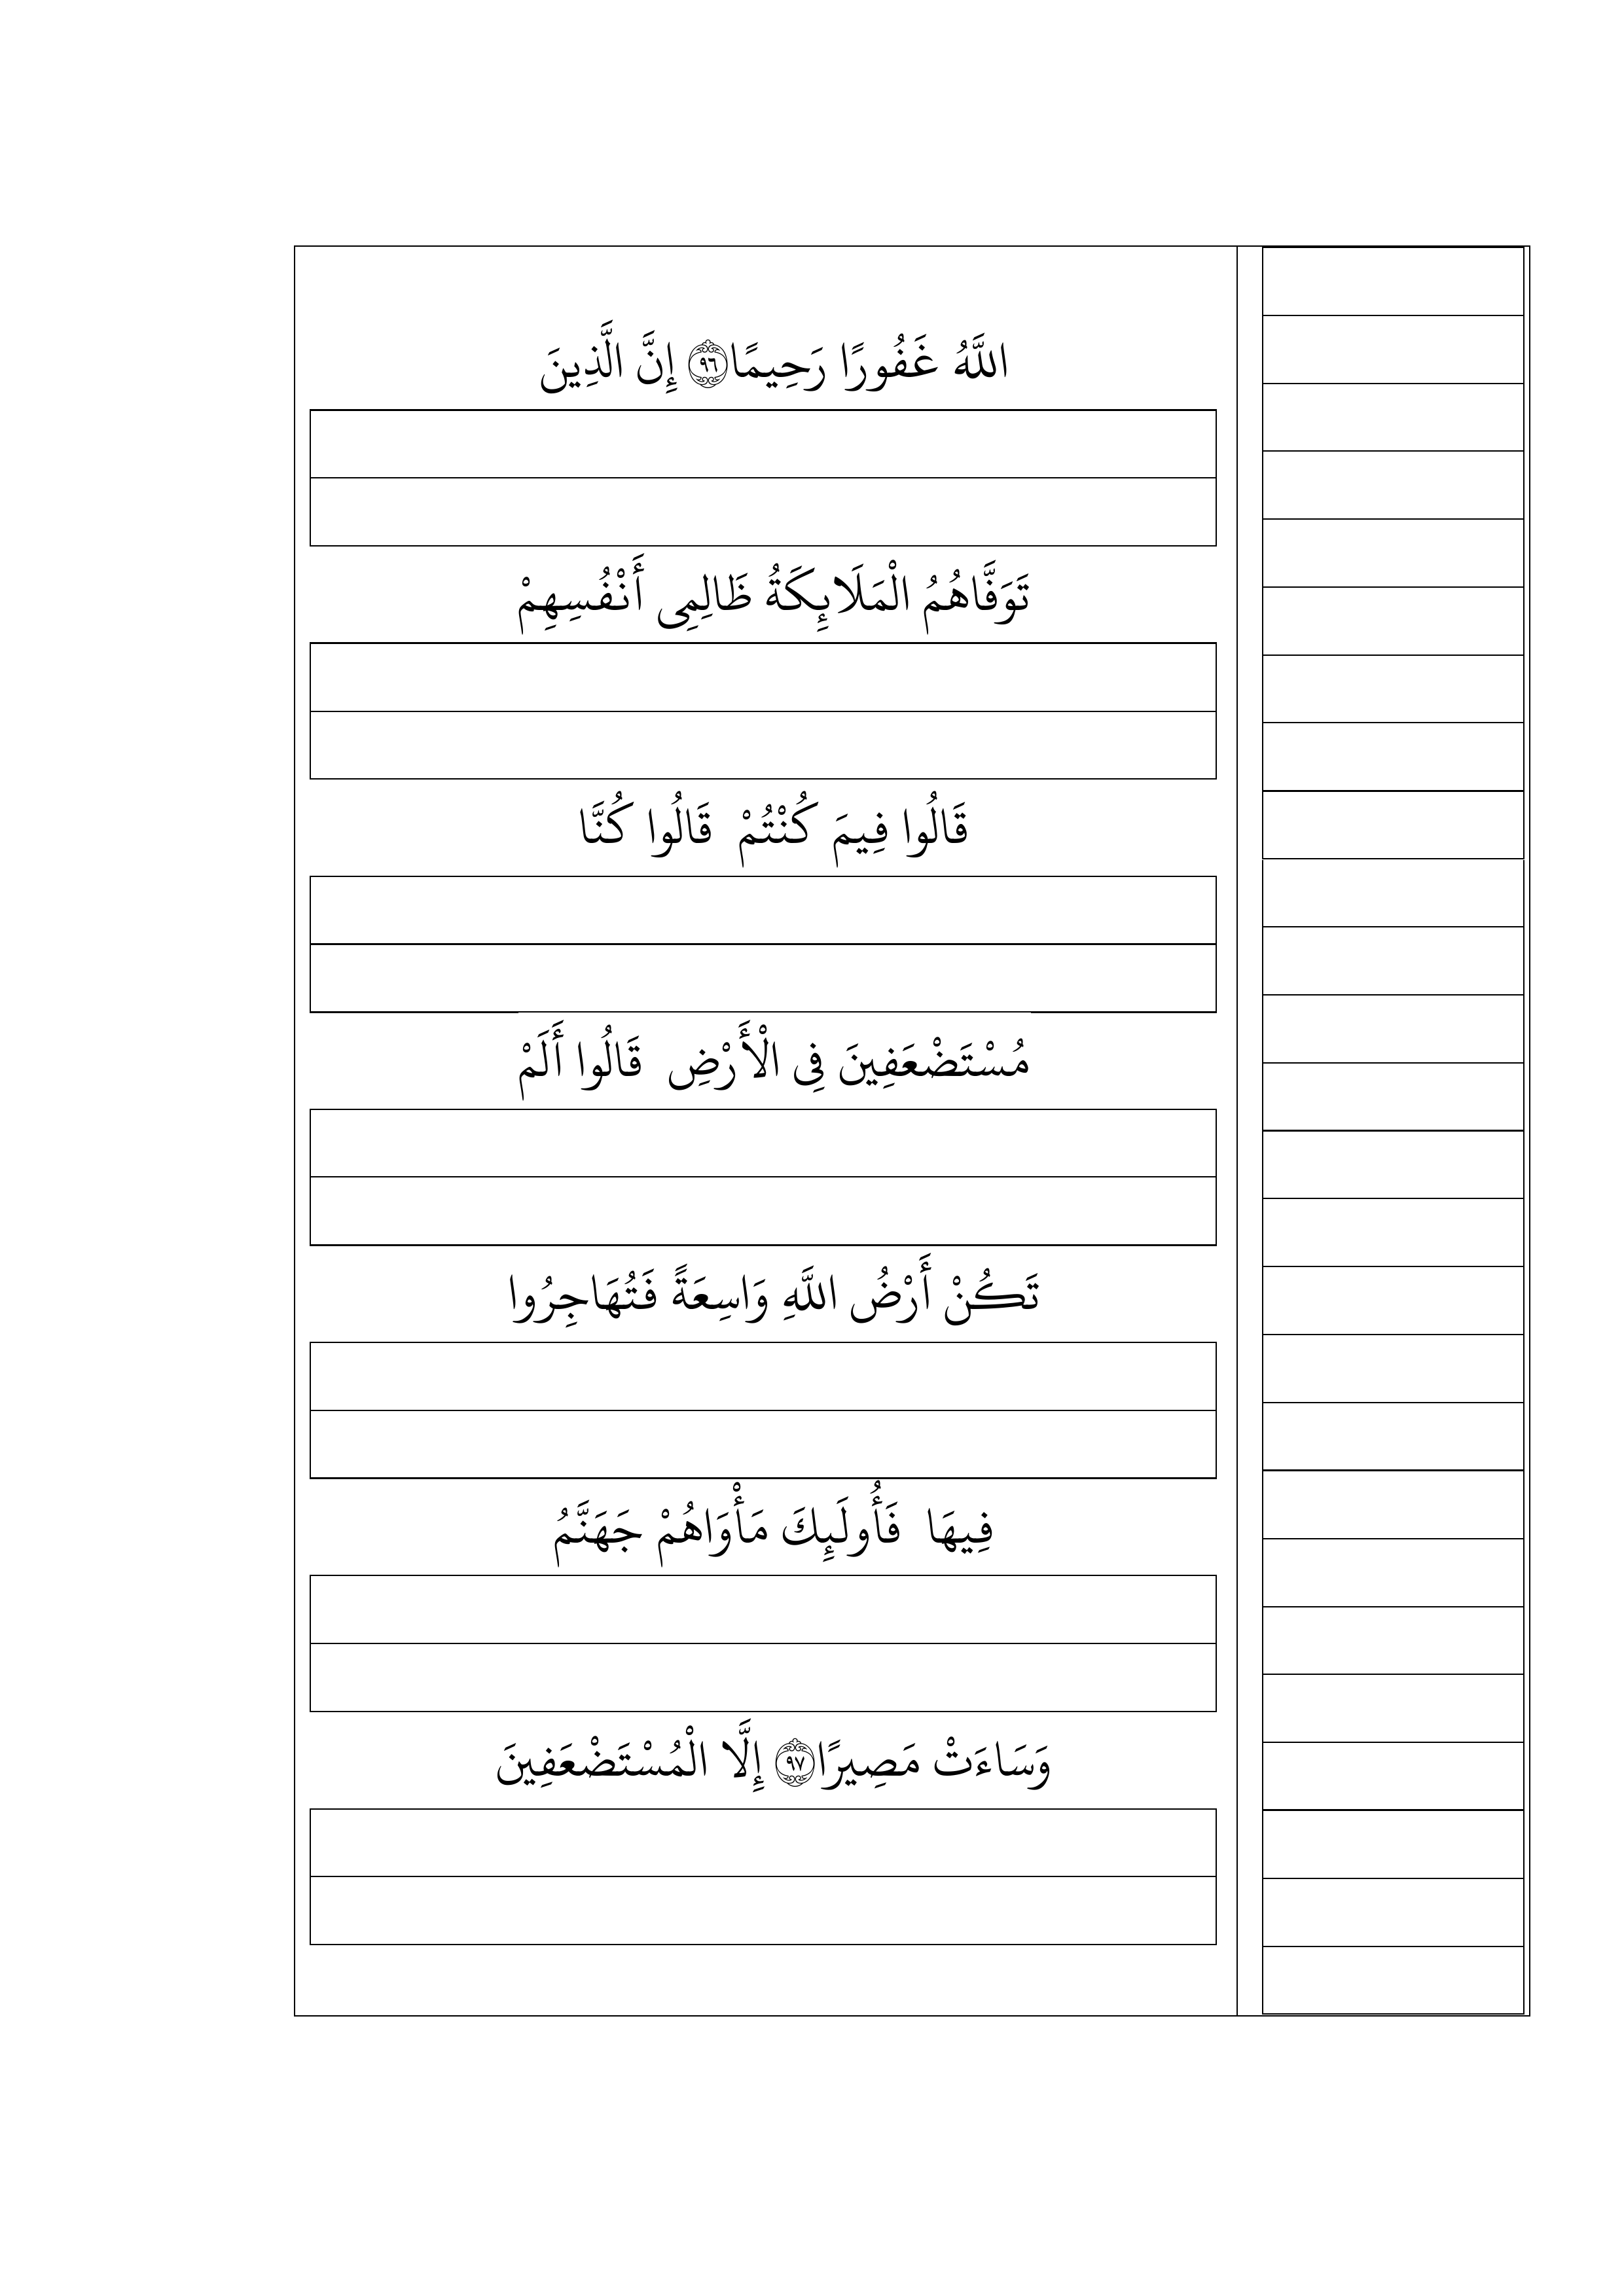 اللَّهُ غَفُورًا رَحِيمًا ۝٩٦ إِنَّ الَّذِينَ
تَوَفَّاهُمُ الْمَلَائِكَةُ ظَالِمِى أَنْفُسِهِمْ
قَالُوا فِيمَ كُنْتُمْ قَالُوا كُنَّا
مُسْتَضْعَفِينَ فِى الْأَرْضِ قَالُوا أَلَمْ
تَكُنْ أَرْضُ اللَّهِ وَاسِعَةً فَتُهَاجِرُوا
فِيهَا فَأُولَئِكَ مَأْوَاهُمْ جَهَنَّمُ
وَسَاءَتْ مَصِيرًا ۝٩٧ إِلَّا الْمُسْتَضْعَفِينَ